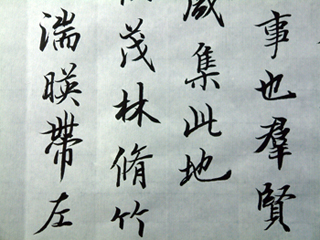 事也羣賢
咸集此地
茂林脩竹
湍暎帶左